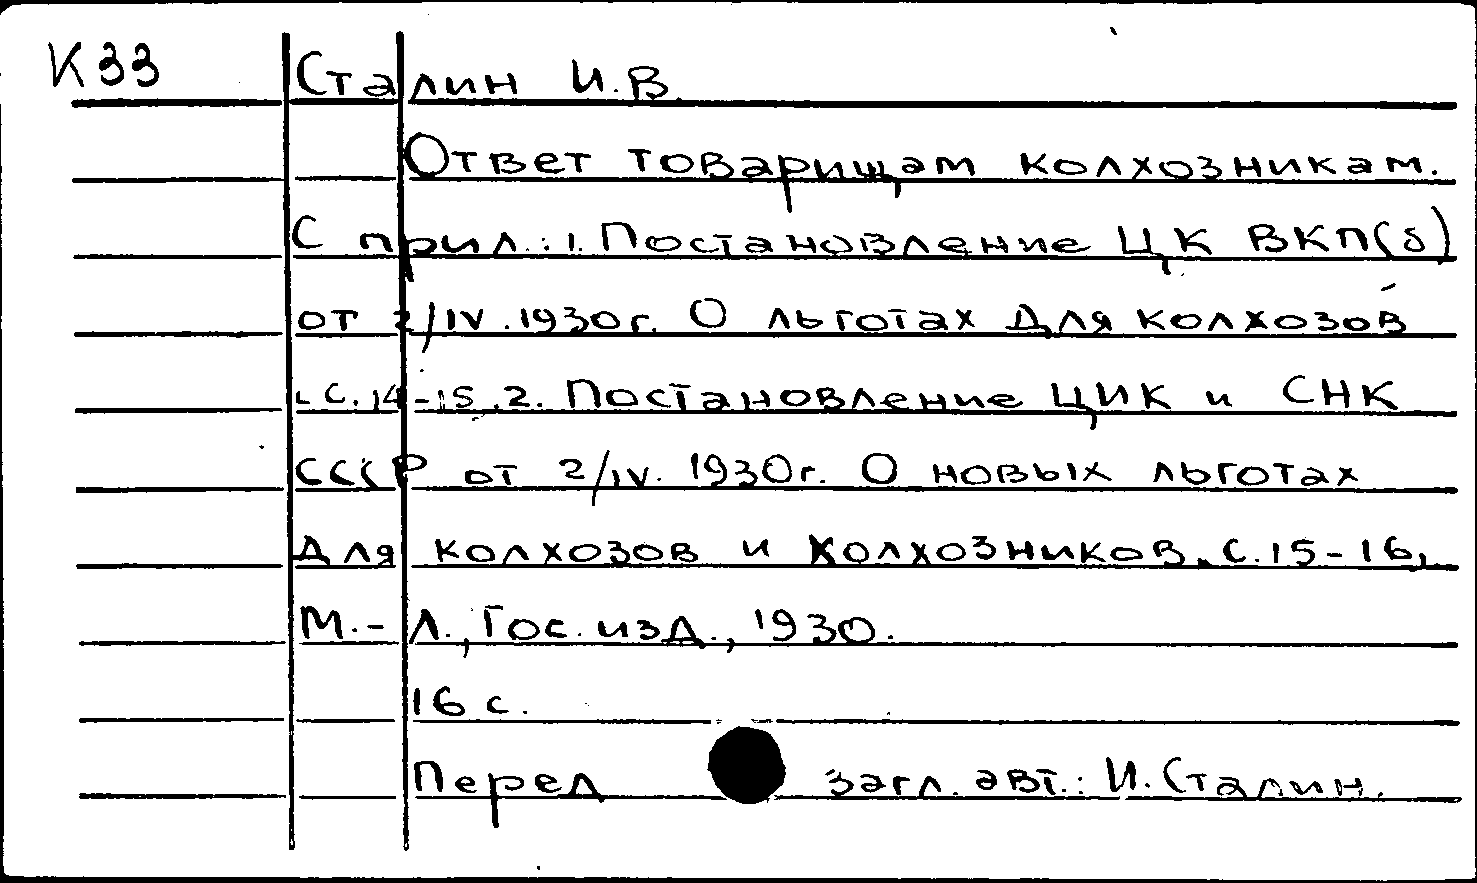 К33
Сталин И.В.
Ответ товарищам колхозникам.
С прил.: 1. Постановление ЦК ВКП(б)
от 2/IV.1930г. О льготах для колхозов
с.14-15.2. Постановление ЦИК и СНК
СССР от 2/IV. 1930г. О новых льготах
для колхозов и колхозников. с.15-16,
М.-Л., Гос. изд., 1930.
16 с.
Перед загл. авт.: И. Сталин.